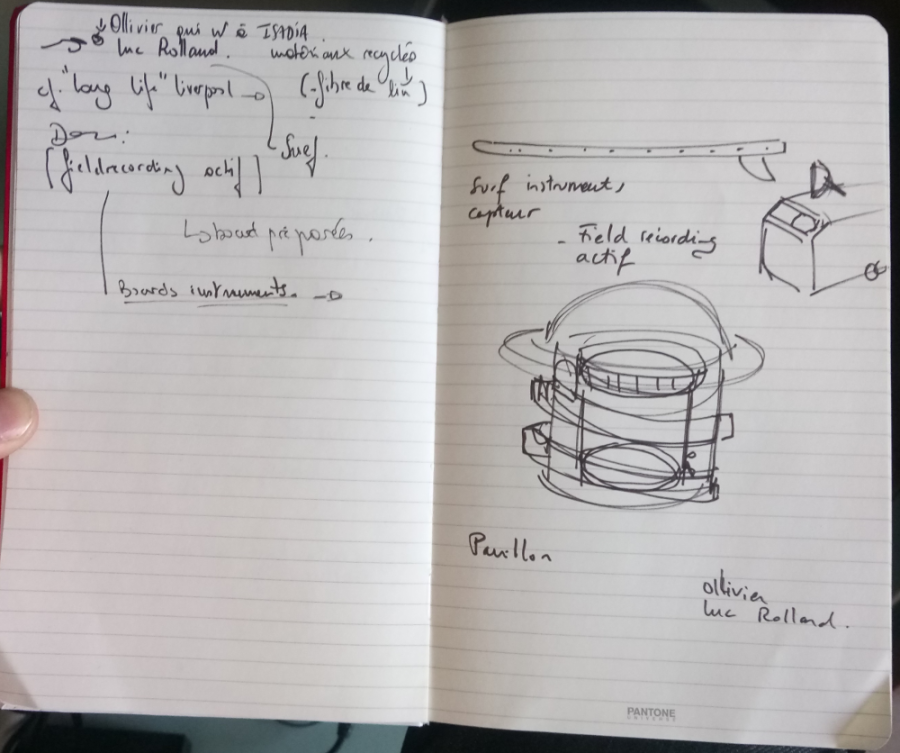 Ollivier qui w à
Luc Rolland. matériaux recyclés
cf. "long life" liverpool (-fibre de lin)
Surf.
[fieldrecording actif]
board préparées.
Boards instruments.
Surf instrument,
capteur
- Field recording
actif
Pavillon
ollivier
Luc Rolland.
PANTONE
UNIVERSE